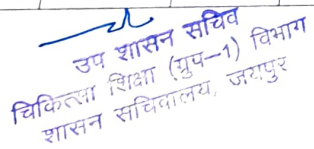 उप शासन सचिव
चिकित्सा शिक्षा (ग्रुप-1) विभाग
शासन सचिवालय, जयपुर